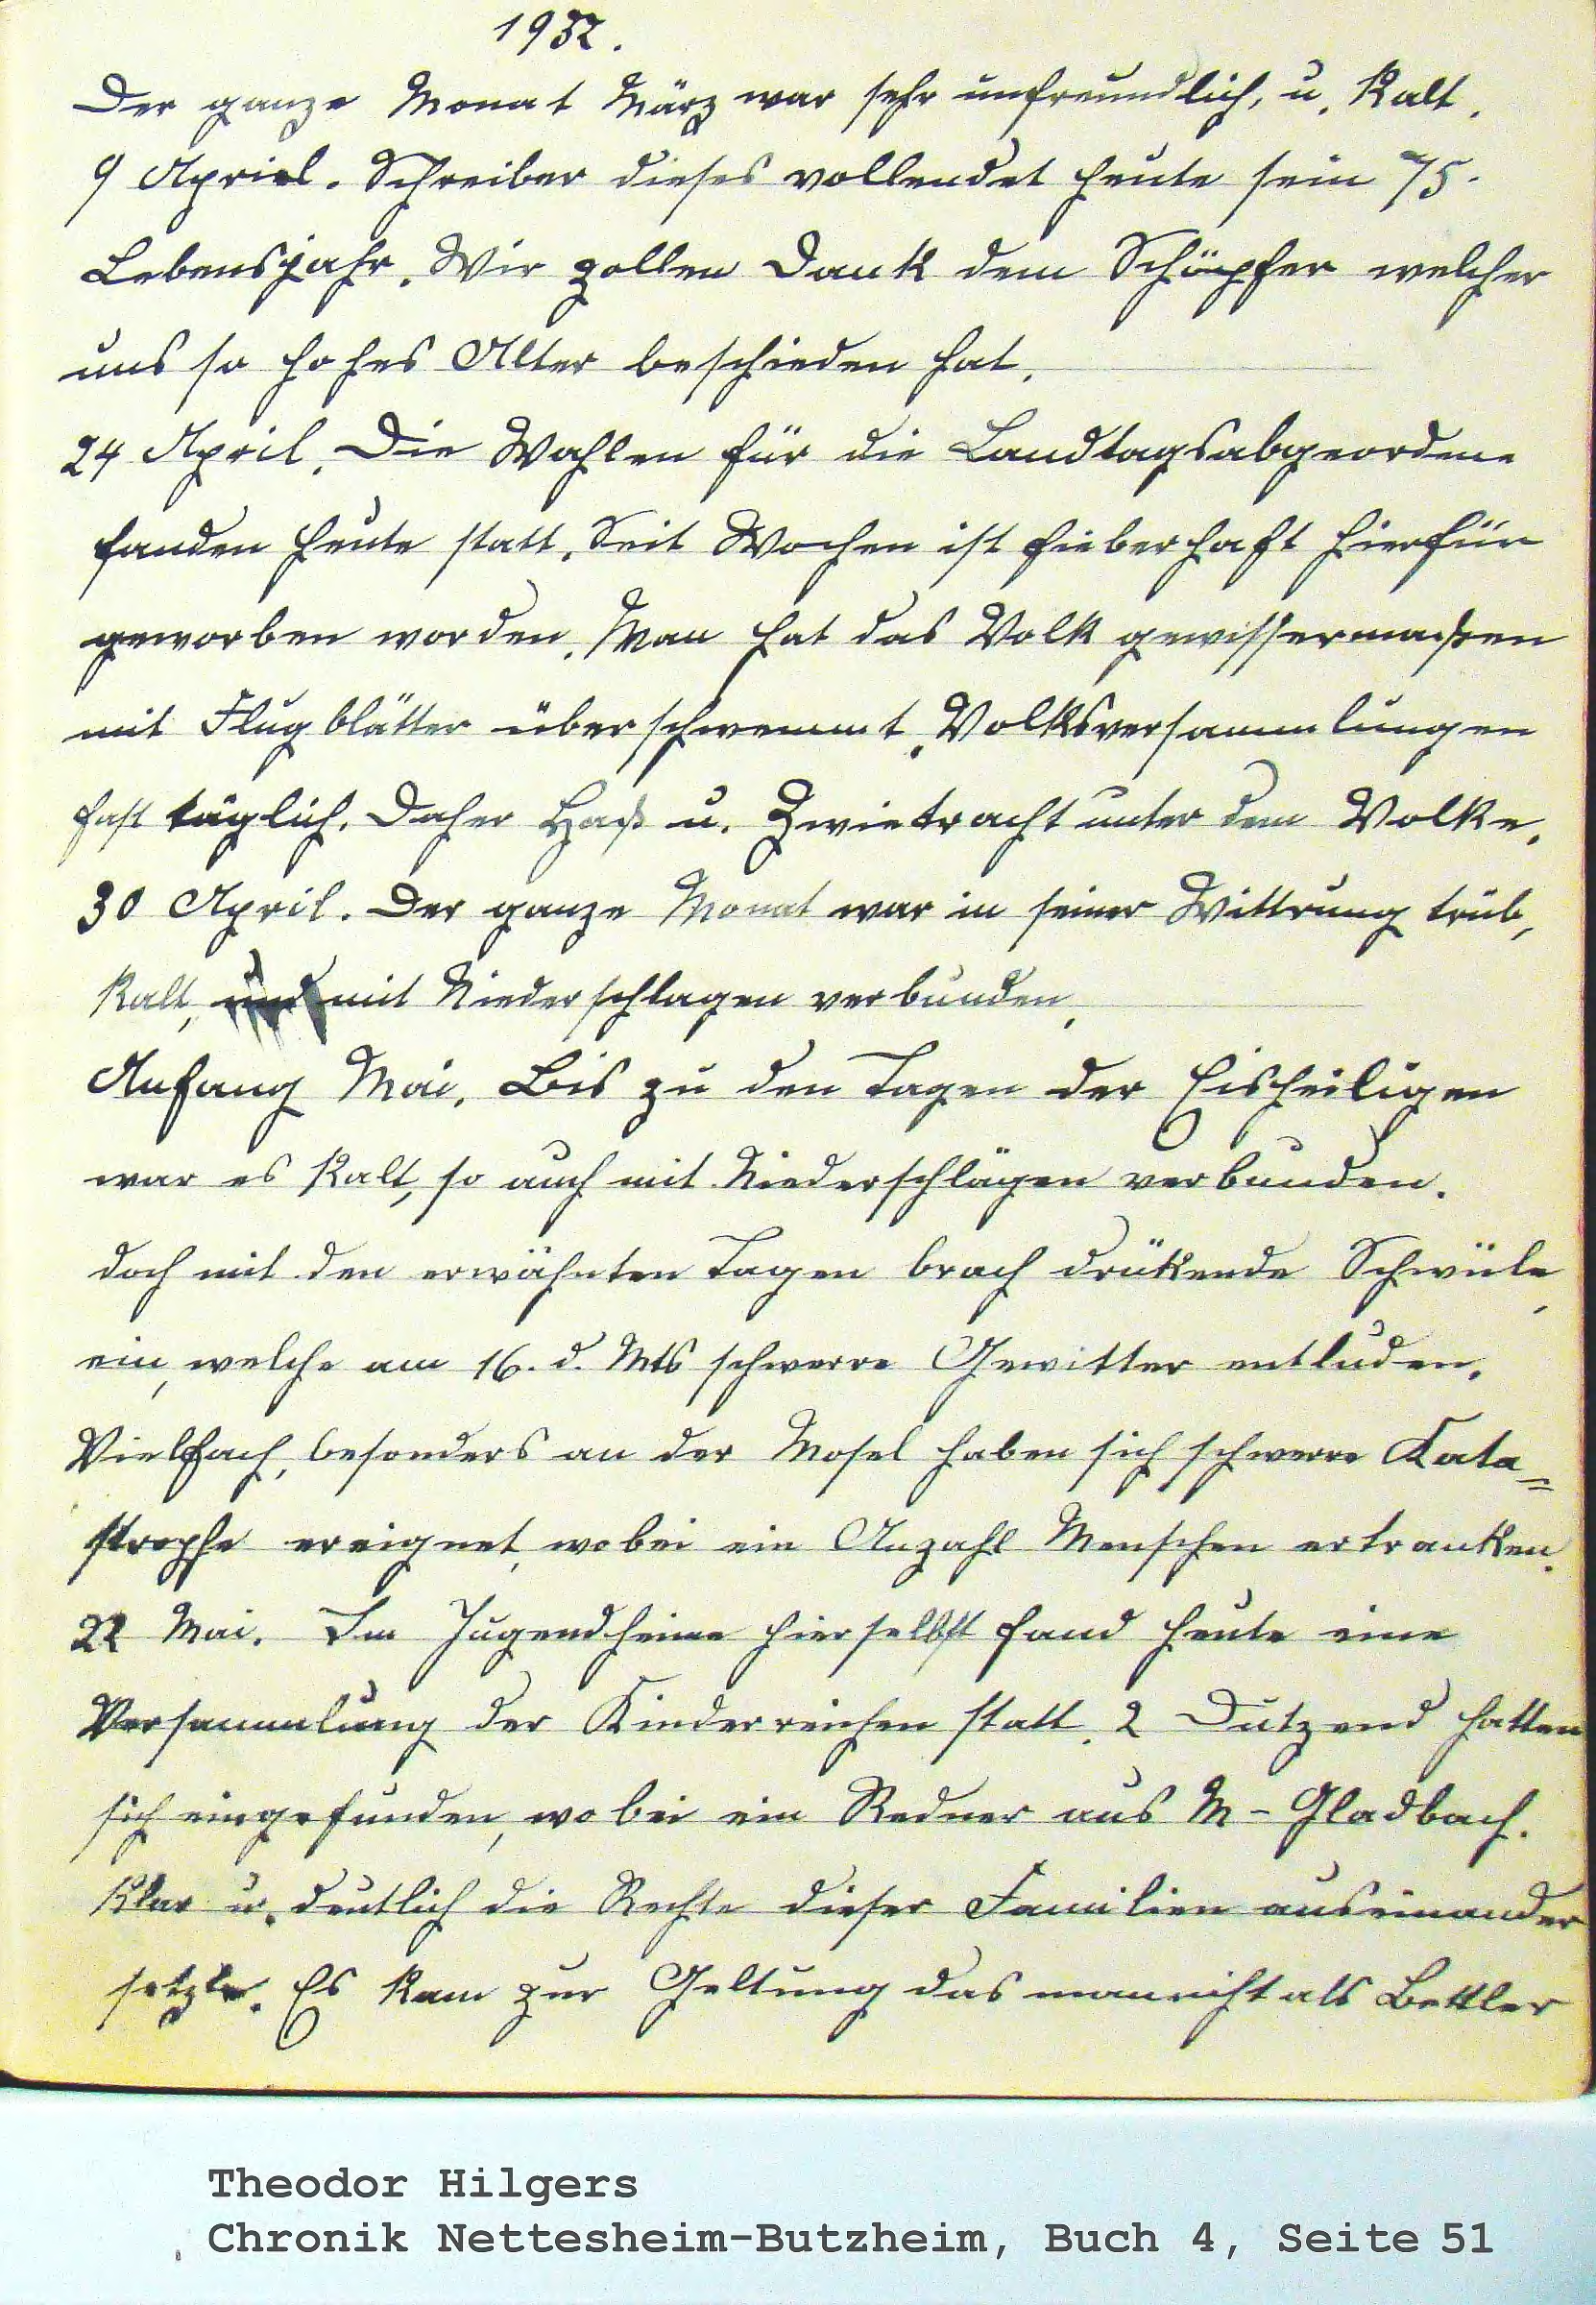 1932.
Der ganze Monat März war sehr unfreundlich, u. Kalt.
9 Apriel. Schreiber dieses vollendet heute sein 75.
Lebensjahr. Wir zollen Dank dem Schöpfer welcher
uns so hohes Alter beschieden hat.
24 April. Die Wahlen für die Landtagsabgeordene
fanden heute statt. Seit Wochen ist fieberhaft hierfür
geworben worden. Man hat das Volk gewissermaßen
mit Flugblätter überschwemmt. Volksversammlungen
fast täglich. Daher Haß u. Zwietracht unter dem Volke.
30 April. Der ganze Monat war in seiner Wittrung trüb,
Kalt, und mit Niederschlagen verbunden.
Anfang Mai. Bis zu den Tagen der Eisheiligen
war es Kalt, so auch mit Niederschlägen verbunden.
doch mit den erwähnten Tagen brach drükende Schwüle,
ein, welche am 16. d. Mts schwere Gewitter entluden.
Vielfach, besonders an der Mosel haben sich schwere Kata=
strophe ereignet, wobei ein Anzahl Menschen ertranken.
22 Mai. Im Jugendheime hierselbst fand heute eine
Versammlung der Kinderreichen statt. 2 Dutzend hatten
sich eingefunden, wobei ein Redner aus M-Gladbach.
Klar u. deutlich die Rechte dieser Familien auseinander
setzte. Es kam zur Geltung das man nicht als Bettler
Theodor Hilgers
Chronik Nettesheim-Butzheim, Buch 4, Seite 51